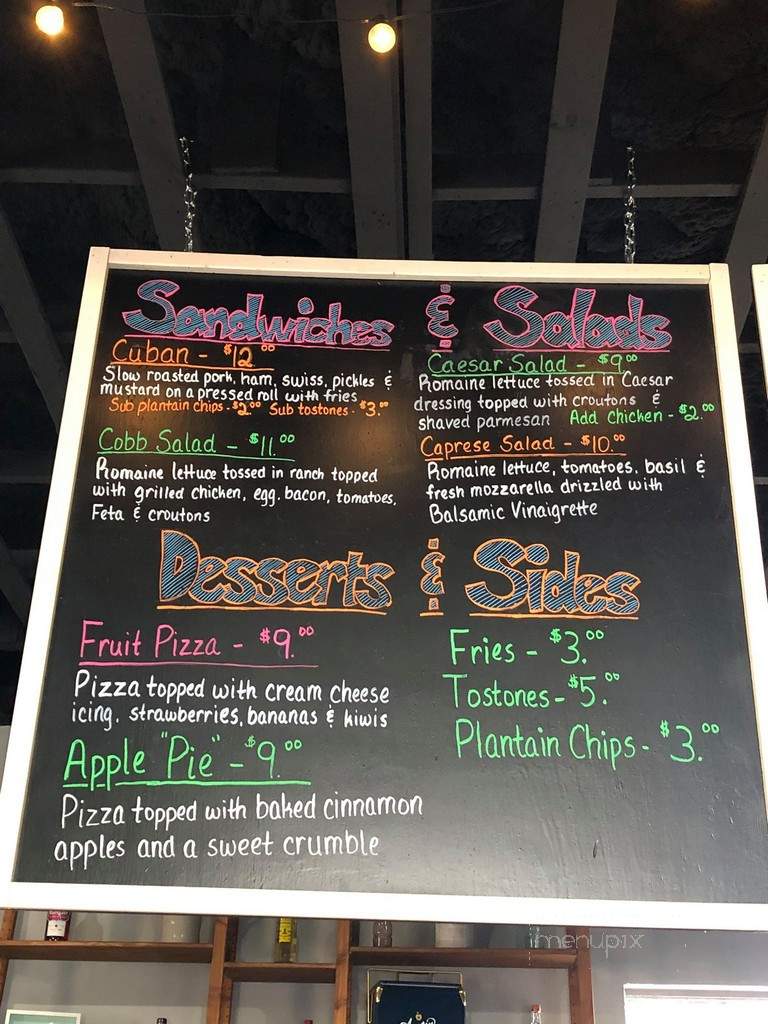 Sandwiches & Salads
Cuban - $12.00
Slow roasted pork, ham, swiss, pickles &
mustard on a pressed roll with fries
Sub plantain chips - $2.00 Sub tostones - $3.00
Cobb Salad - $11.00
Romaine lettuce tossed in ranch topped
with grilled chicken, egg, bacon, tomatoes,
Feta & croutons
Caesar Salad - $9.00
Romaine lettuce tossed in Caesar
dressing topped with croutons &
shaved parmesan Add Chicken - $2.00
Caprese Salad - $10.00
Romaine lettuce, tomatoes, basil &
fresh mozzarella drizzled with
Balsamic Vinaigrette
Desserts & Sides
Fruit Pizza - $9.00
Pizza topped with cream cheese
icing, strawberries, bananas & kiwis
Apple "Pie" - $9.00
Pizza topped with baked cinnamon
apples and a sweet crumble
Fries - $3.00
Tostones - $5.00
Plantain Chips - $3.00
menupix